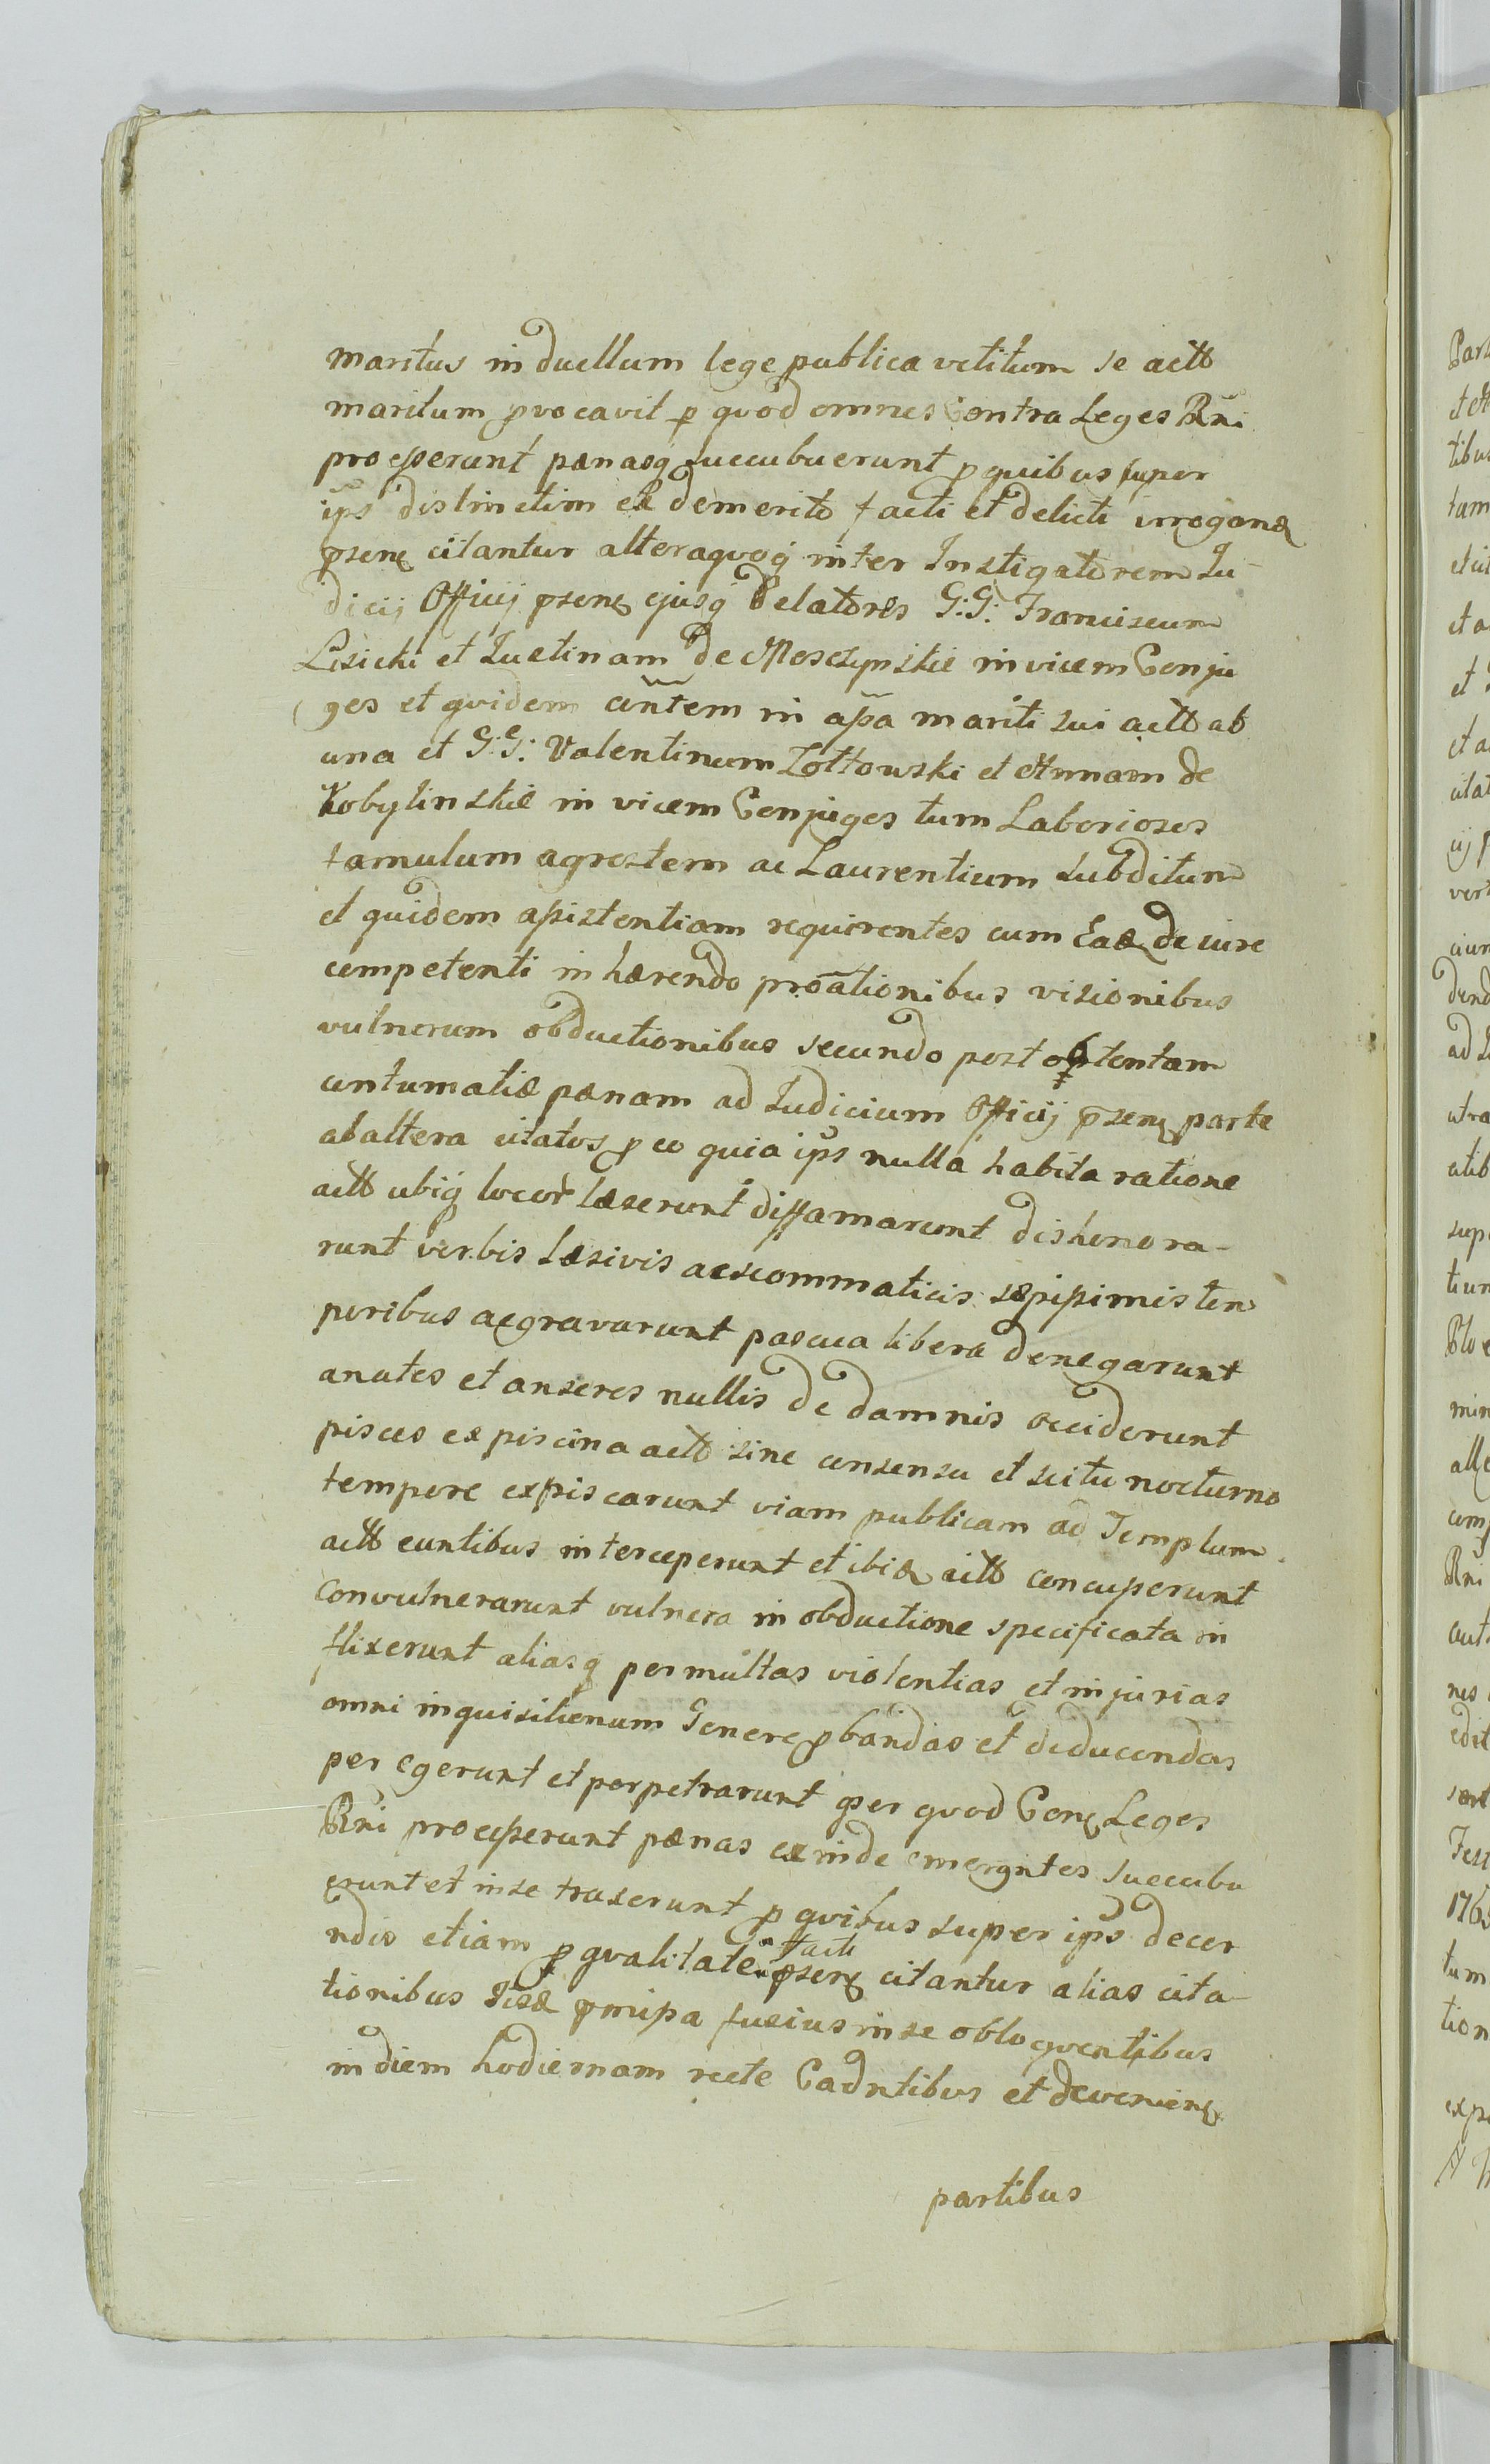 maritus in duellum lege publica vetitum se actt
maritum pvocavit p quod omnes Contra Leges Rñi
processerunt pænasq succubuerunt p quibus super
ips distinctim ex demerito facti et delicti irrogand
psenę citantur alteraquoq inter Instigatorem Ju-
dicij Officij psenę ejusq Delatores G:G: Franciscum
Lisicki et Justinam de Mosczynskie invicem Conju
ges et quidem cñtem in aßa mariti sui actt ab
una et G:G: Valentinum Zołtowski et Annam de
Kobylinskie in vicem Conjuges tum Laboriosos
famulum agrestem ac Laurentium subditum
et quidem assistentiam requirentes cum Ead de iure
competenti inhærendo proãtionibus visionibus
vulnerum obductionibus secundo post obtentam
contumatiæ pænam ad Judicium Officij psenę parte
ab altera citatos p eo quia ips nulla habita ratione
actt ubiq locor læserunt diffamarunt dishonora-
runt verbis læsivis ac scommaticis sæpissimis tem
poribus aggravarunt pascua libera denegarunt
anates et anseres nullis de damnis occiderunt
pisces ex piscina actt sine consensu et scitu nocturno
tempore expiscarunt viam publicam ad Templum
actt euntibus interceperunt et ibid actt concusserunt
convulnerarunt vulnera in obductione specificata in
flixerunt aliasq permultas violentias et injurias
omni inquisitionum Genere pbandas et deducendas
per egerunt et perpetrarunt per quod Conę Leges
Rñi processerunt pænas exinde emergntes succubu
erunt et in se traxerunt p quibus super ips decer
ndis etiam p qualitate facti psenę citantur alias cita-
tionibus fusius in se obloquentibus
in diem hodiernam recte Cadntibus et devenienę
partibus